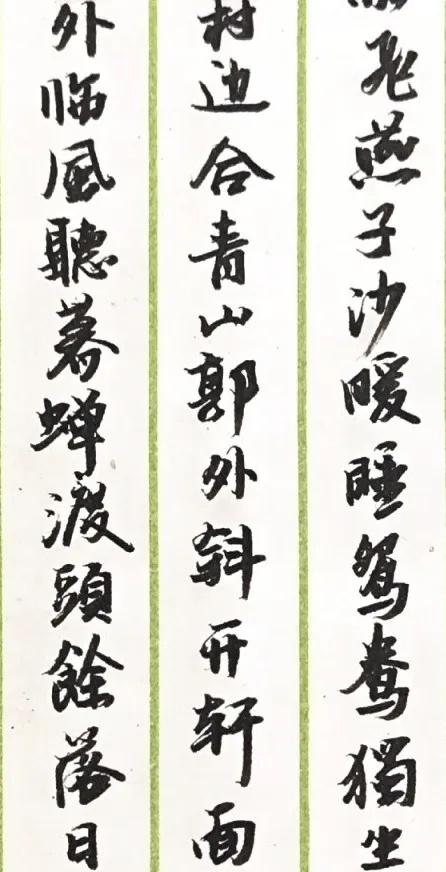 飛燕子沙暖睡鴛鴦獨坐
村边合青山郭外斜开轩面
外临風聽暮蝉渡頭餘落日